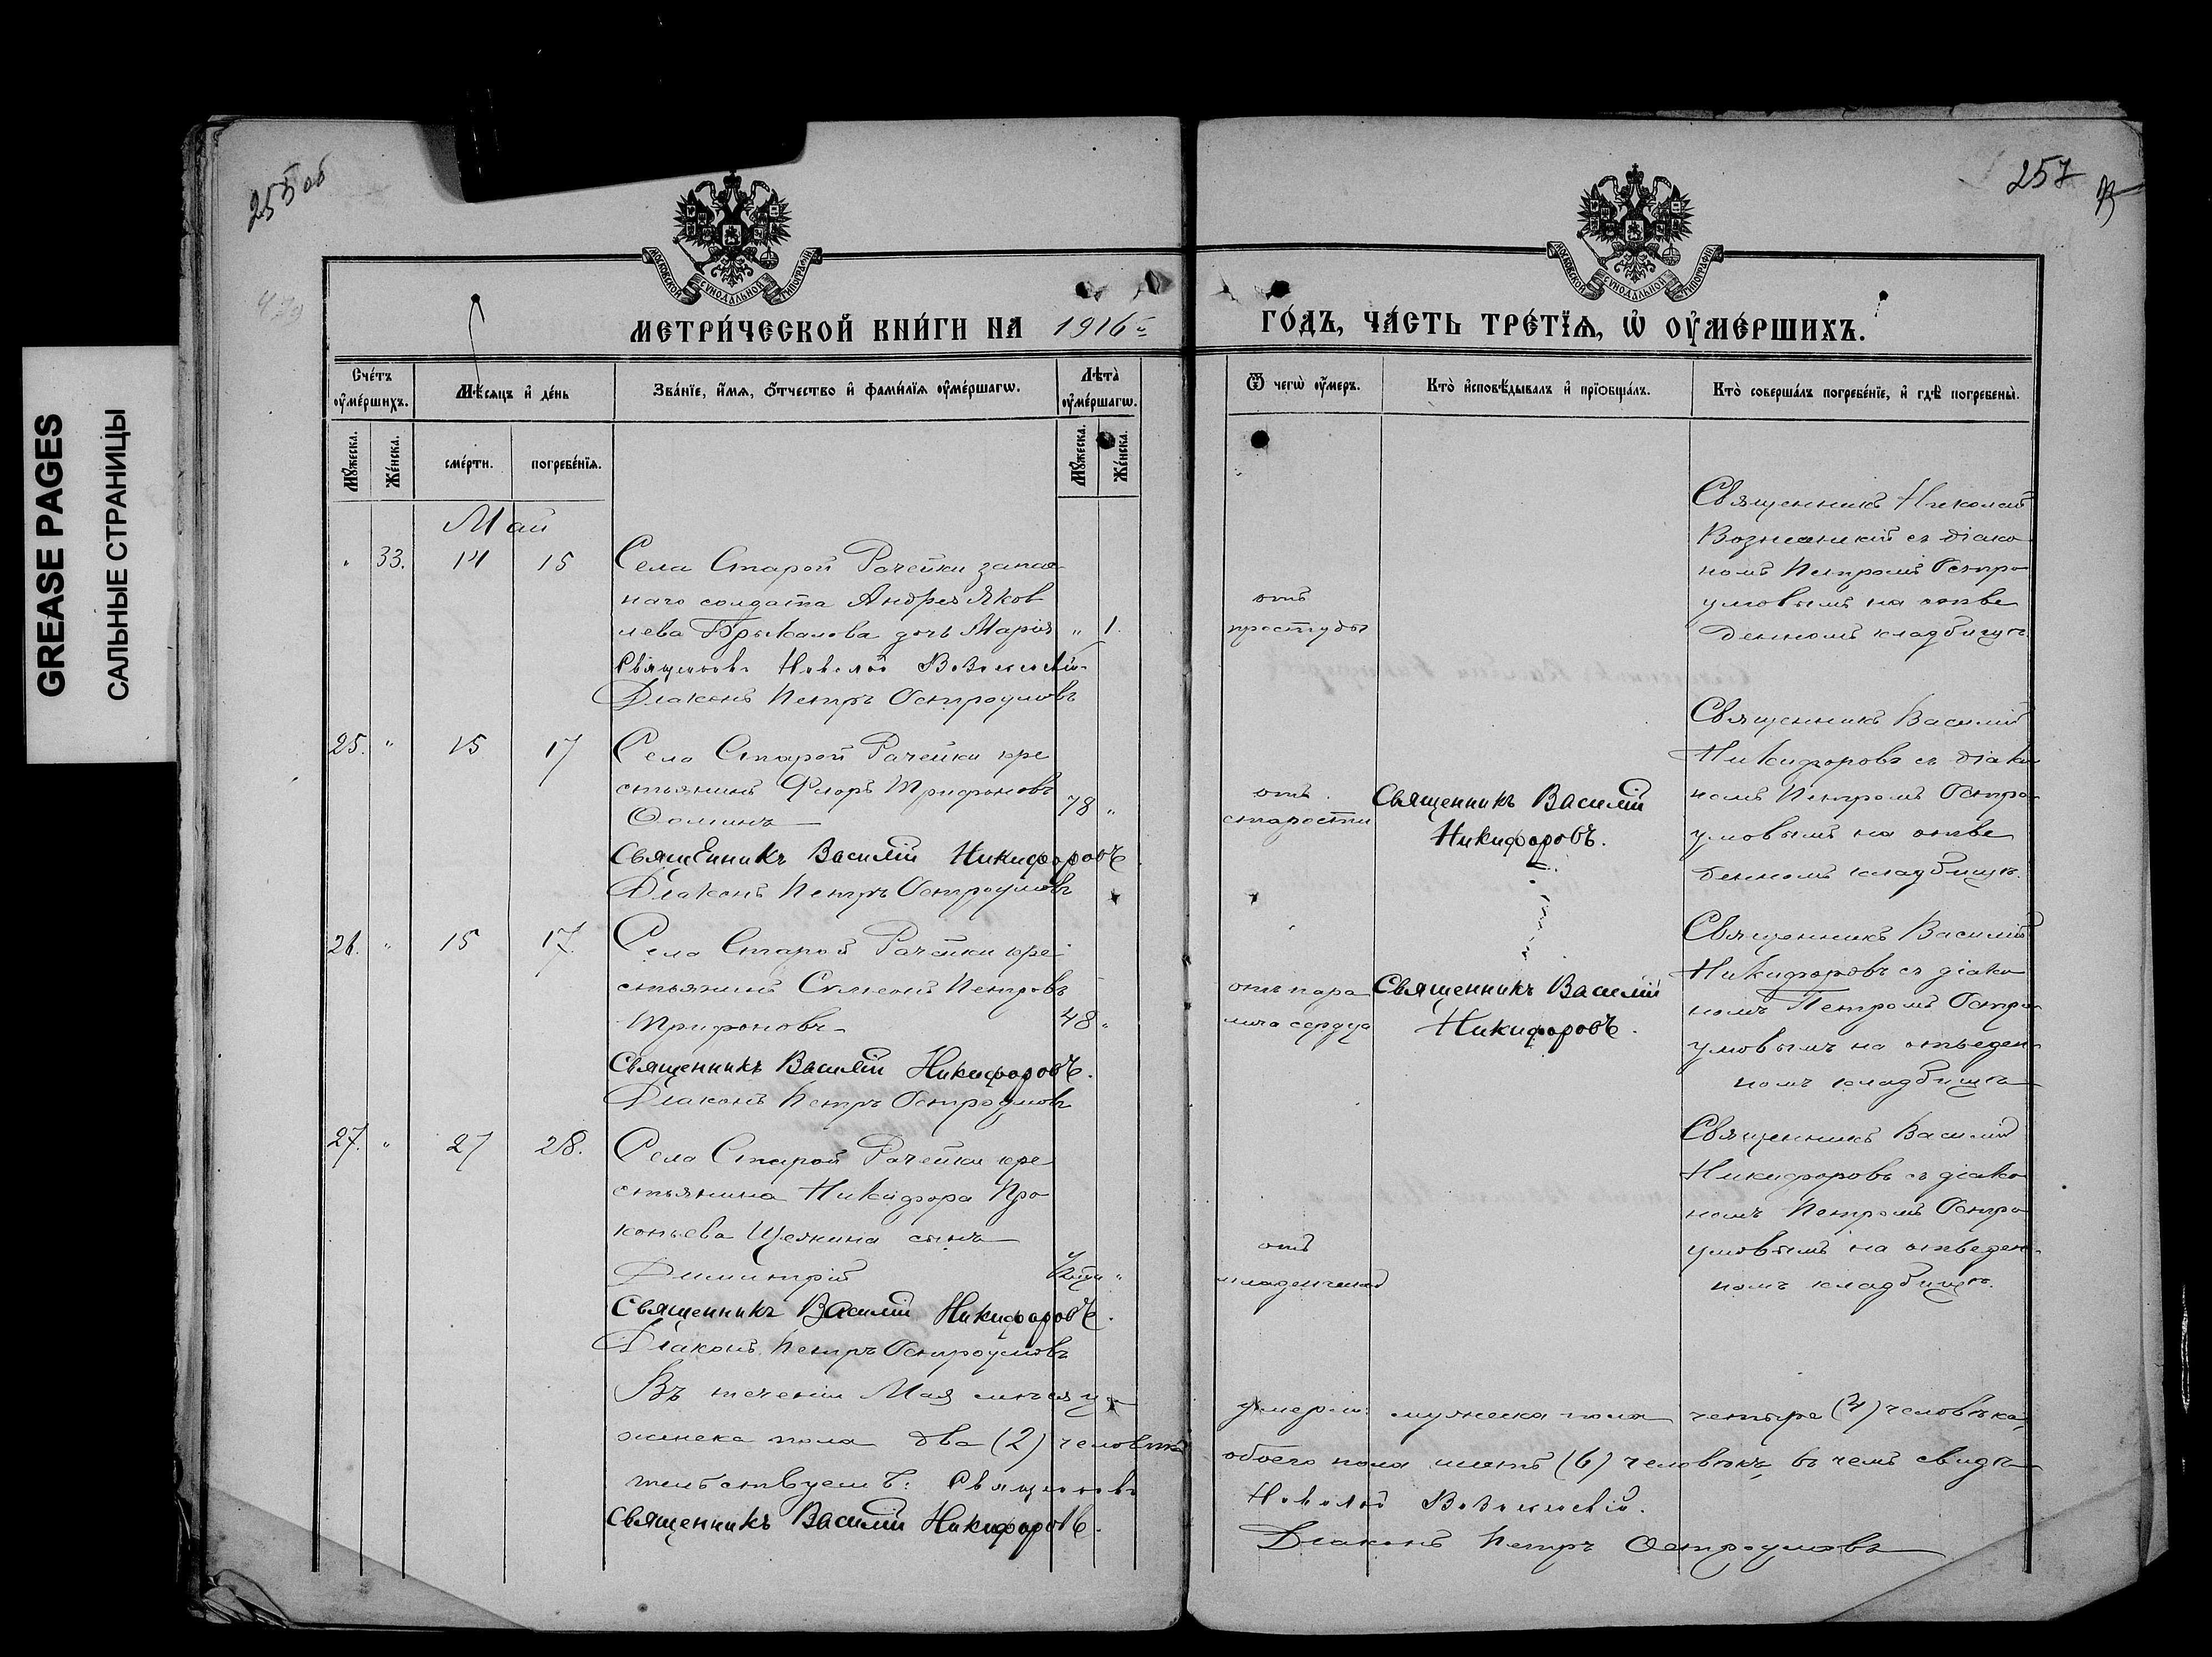 GREASE PAGES
САЛЬНЫЕ СТРАНИЦЫ
255 об
257
МОСКОВСКОЙ СѴНОДАЛЬНОЙ ТИПОГРАФІИ
МОСКОВСКОЙ СѴНОДАЛЬНОЙ ТИПОГРАФІИ
МЕТРИ́ЧЕСКОЙ КНИ́ГИ НА 1916 й
ГО́ДЪ, ЧА́СТЬ ТРЕ́ТЇѦ, Ѡ҆ ОУ҆МЕ́РШИХЪ.
Сче́тъ оу҆ме́ршихъ.
Мѣ́сѧцъ и҆ де́нь
Зва́нїе, и҆́мѧ, ѻ҆́тчество и҆ фами́лїѧ оу҆ме́ршагѡ.
Лѣ́та оу҆ме́ршагѡ.
Ѿ чегѡ̀ оу҆́меръ.
Кто̀ и҆сповѣ́дывалъ и҆ прїѡбща́лъ.
Кто̀ соверша́лъ погребе́нїе, и҆ гдѣ̀ погребены̀.
Мꙋ́жеска.
Же́нска.
сме́рти.
погребе́нїѧ.
Мꙋ́жеска.
Же́нска.
Май
" 33. 14 15
Села Старой Рачейки запас
наго солдата Андрея Яков
лева Брыкалова дочь Марія " 1.
Священникъ Николай Вознесенскій
Діаконъ Петръ Остроумовъ
отъ
простуды
Священникъ Николай
Вознесенскій съ діако
номъ Петромъ Остро
умовымъ на отве
денномъ кладбищѣ
25. " 15 17
Села Старой Рачейки кре
стьянинъ Флоръ Трифоновъ
Ѳоминъ 78 "
Священникъ Василій Никифоровъ.
Діаконъ Петръ Остроумовъ
отъ
старости
Священникъ Василій
Никифоровъ.
Священникъ Василій
Никифоровъ съ діако
номъ Петромъ Остро
умовымъ на отве
денномъ кладбищѣ.
26. " 15 17.
Села Старой Рачейки кре
стьянинъ Симеонъ Петровъ
Трифоновъ 48 "
Священникъ Василій Никифоровъ.
Діаконъ Петръ Остроумовъ
отъ пара
лича сердца
Священникъ Василій
Никифоровъ.
Священникъ Василій
Никифоровъ съ діако
номъ Петромъ Остро
умовымъ на отведен
номъ кладбищѣ
27. " 27 28.
Села Старой Рачейки кре
стьянина Никифора Про
копьева Щелкина сынъ
Димитрій "
Священникъ Василій Никифоровъ.
Діаконъ Петръ Остроумовъ
отъ
младенческой
Священникъ Василій
Никифоровъ съ діако
номъ Петромъ Остро
умовымъ на отведен
номъ кладбищѣ.
Въ теченіи Мая мѣсяца умерло: мужеска пола четыре (4) человѣка,
женска пола два (2) человѣка обоего пола шесть (6) человѣкъ, въ чемъ свидѣ
тельствуемъ: Священникъ Николай Вознесенскій.
Священникъ Василій Никифоровъ.
Діаконъ Петръ Остроумовъ